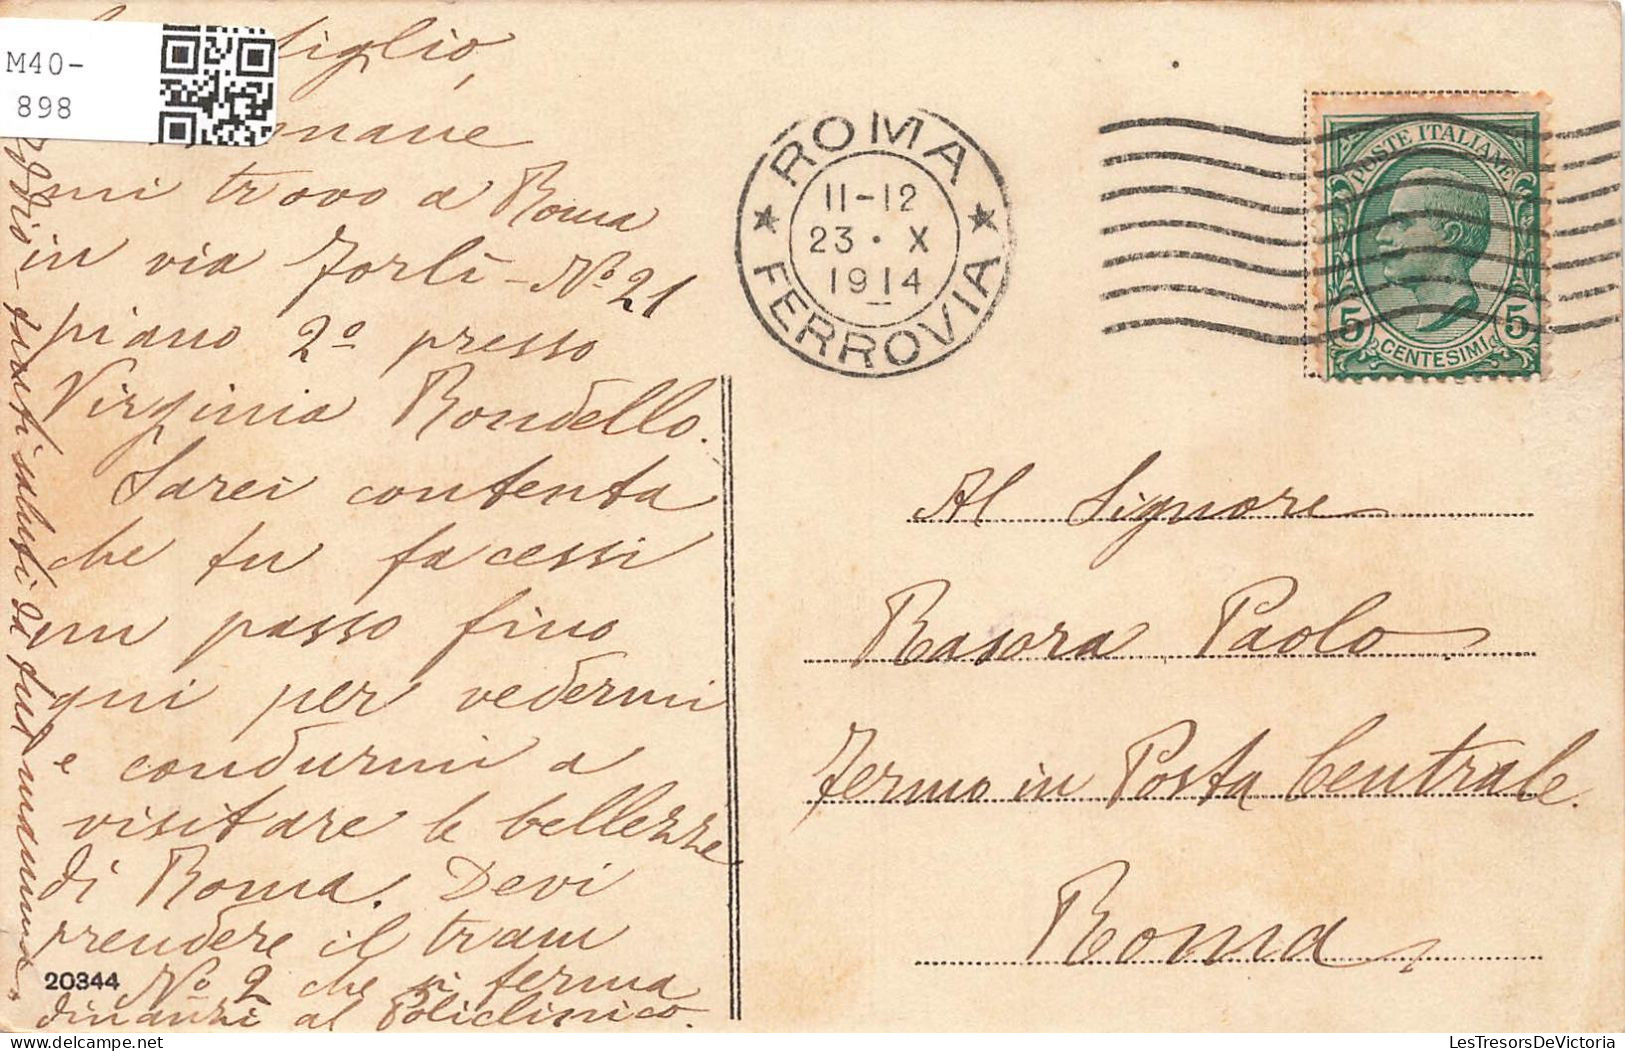 M40-
898
figlio,
mi trovo a Roma
in via Forlì - No 21
piano 2º presso
Virginia Rondello.
Sarei contenta
che tu facessi
un passo fino
qui per vedermi
e condurmi a
visitare le bellezze
di Roma. Devi
prendere il tram
No 2 che si ferma
dinanzi al Policlinico.
Addio - tanti saluti da tua mamma.
20344
ROMA
11-12
23 · X
1914
FERROVIA
POSTE ITALIANE
5 CENTESIMI 5
Al Signore
Rasora Paolo
Fermo in Posta Centrale.
Roma
LesTresorsDeVictoria.com